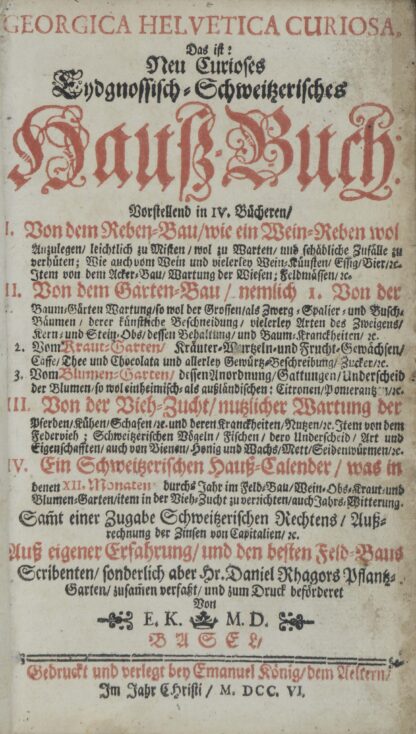 GEORGICA HELVETICA CURIOSA.
Das ist:
Neu Curioses
Eydgnossisch-Schweitzerisches
Hauß-Buch:
Vorstellend in IV. Bücheren/
I. Von dem Reben-Bau/wie ein Wein-Reben wol
Anzulegen/ leichtlich zu Misten/wol zu Warten/ und schädliche Zufälle zu
verhüten; Wie auch vom Wein und vielerley Wein-Künsten/Essig/Bier/ꝛc.
Item von dem Acker-Bau/Wartung der Wiesen; Feldmässen/ꝛc.
II. Von dem Garten-Bau/ nemlich 1. Von der
Baum-Gärten Wartung/so wol der Grossen/als Zwerg-Spalier-und Busch-
Bäumen/ derer künstliche Beschneidung/ vielerley Arten des Zweigens/
Kern-und Stein-Obs/dessen Behaltung/und Baum-Kranckheiten/ ꝛc.
2. Vom Kraut-Garten/ Kräuter-Wurtzeln-und Frucht-Gewächsen/
Caffe/Thee und Chocolata und allerley Gewürtz-Beschreibung/Zucker/ꝛc.
3. Vom Blumen-Garten/dessen Anordnung/Gattungen/Underscheid
der Blumen/so wol einheimisch-als außländischen: Citronen/Pomerantzen/ꝛc.
III. Von der Vieh-Zucht/nutzlicher Wartung der
Pferden/Kühen/Schafen/ꝛc. und deren Kranckheiten/Nutzen/ꝛc. Item von dem
Federvieh; Schweitzerischen Vögeln/Fischen/ dero Underscheid/ Art und
Eigenschafften/auch von Bienen/Honig und Wachs/Mett/Seidenwürmen/ꝛc.
IV. Ein Schweitzerischen Hauß-Calender/ was in
denen XII. Monaten durchs Jahr im Feld-Bau/Wein-Obs-Kraut-und
Blumen-Garten/item in der Vieh-Zucht zu verrichten/auch Jahrs-Witterung.
Sam̃t einer Zugabe Schweitzerischen Rechtens/ Auß-
rechnung der Zinsen von Capitalien/ꝛc.
Auß eigener Erfahrung/und den besten Feld-Baus
Scribenten/sonderlich aber Hr. Daniel Rhagors Pflantz-
Garten/zusam̃en verfaßt/und zum Druck beförderet
Von
E. K. M. D.
BASEL/
Gedruckt und verlegt bey Emanuel König/dem Aeltern/
Im Jahr Christi/ M. DCC. VI.